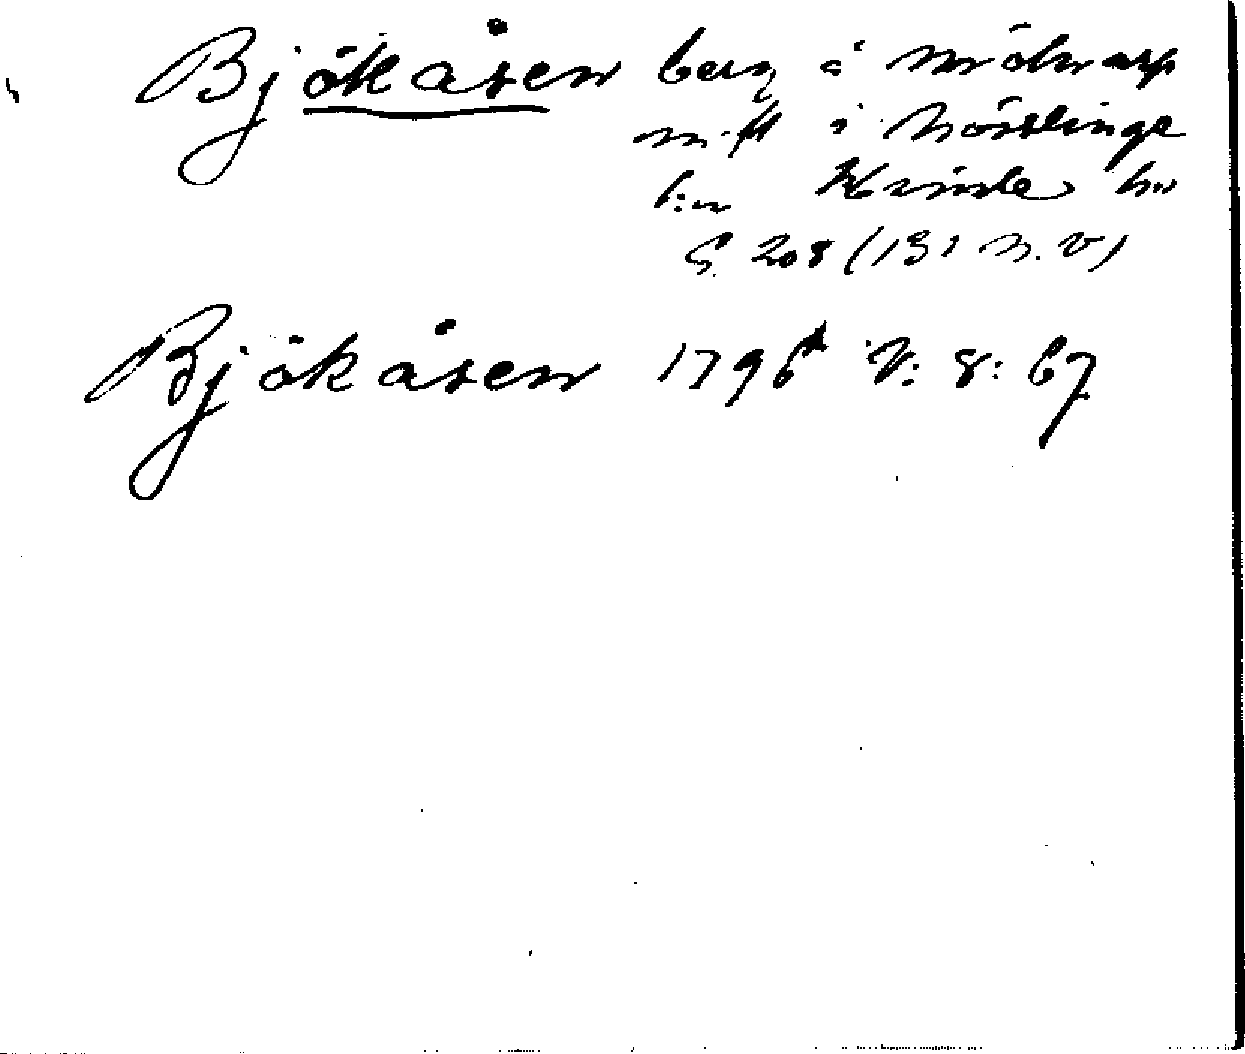 Bjökåsen berg å Mölnarp
m. fl. i Nösslinge
s:n Himle hd
S. 208 (131 n.v)
Bjökåsen 1796 V: 8: 67